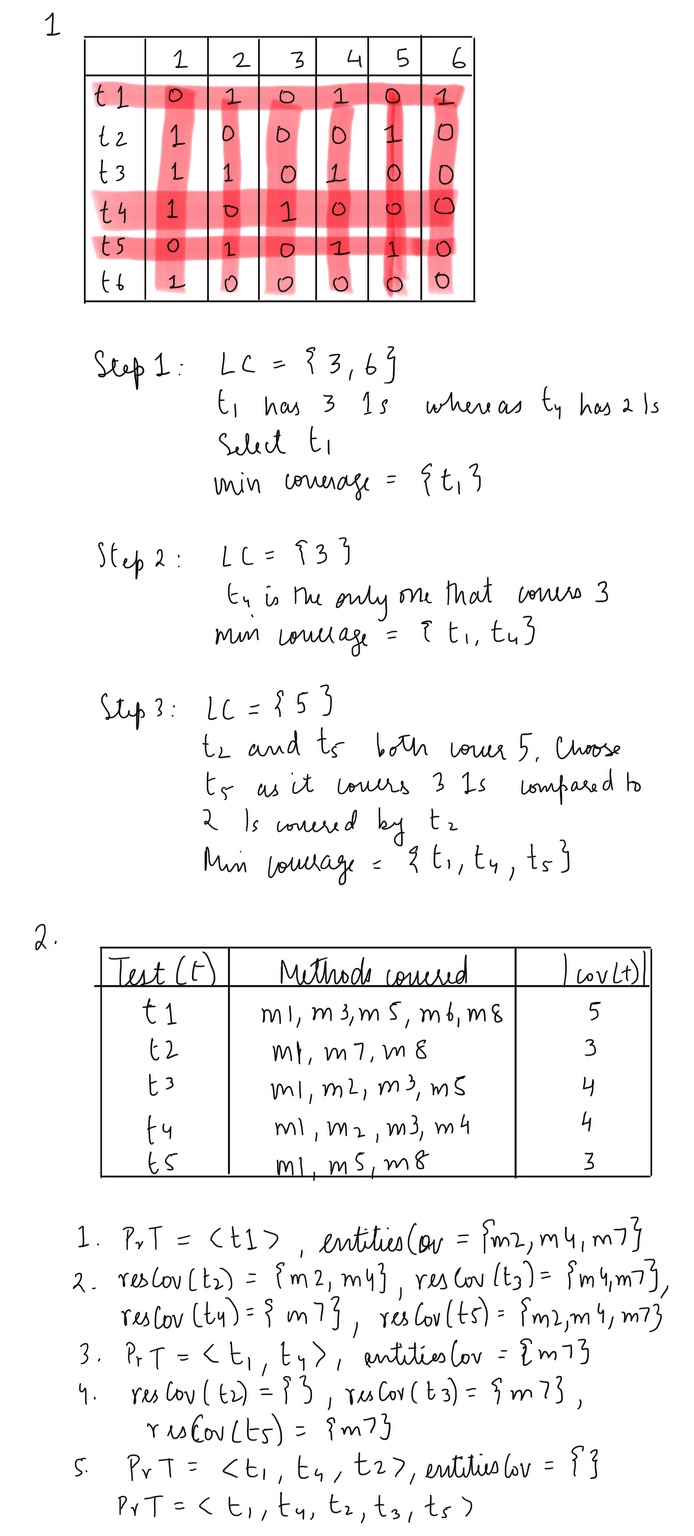 1
1 2 3 4 5 6
t1 0 1 0 1 0 1
t2 1 0 0 0 1 0
t3 1 1 0 1 0 0
t4 1 0 1 0 0 0
t5 0 1 0 1 1 0
t6 1 0 0 0 0 0
Step 1: LC = {3,6}
t1 has 3 1s whereas t4 has 2 1s
Select t1
min coverage = {t1}
Step 2: LC = {3}
t4 is the only one that covers 3
min coverage = {t1, t4}
Step 3: LC = {5}
t2 and t5 both cover 5. Choose
t5 as it covers 3 1s compared to
2 1s covered by t2
Min coverage = {t1, t4, t5}
2.
Test (t) Methods covered |cov(t)|
t1 m1, m3, m5, m6, m8 5
t2 m1, m7, m8 3
t3 m1, m2, m3, m5 4
t4 m1, m2, m3, m4 4
t5 m1, m5, m8 3
1. PrT = <t1>, entitiesCov = {m2, m4, m7}
2. resCov(t2) = {m2, m4}, resCov(t3) = {m4, m7},
resCov(t4) = {m7}, resCov(t5) = {m2, m4, m7}
3. PrT = <t1, t4>, entitiesCov = {m7}
4. resCov(t2) = {}, resCov(t3) = {m7},
resCov(t5) = {m7}
5. PrT = <t1, t4, t2>, entitiesCov = {}
PrT = <t1, t4, t2, t3, t5>